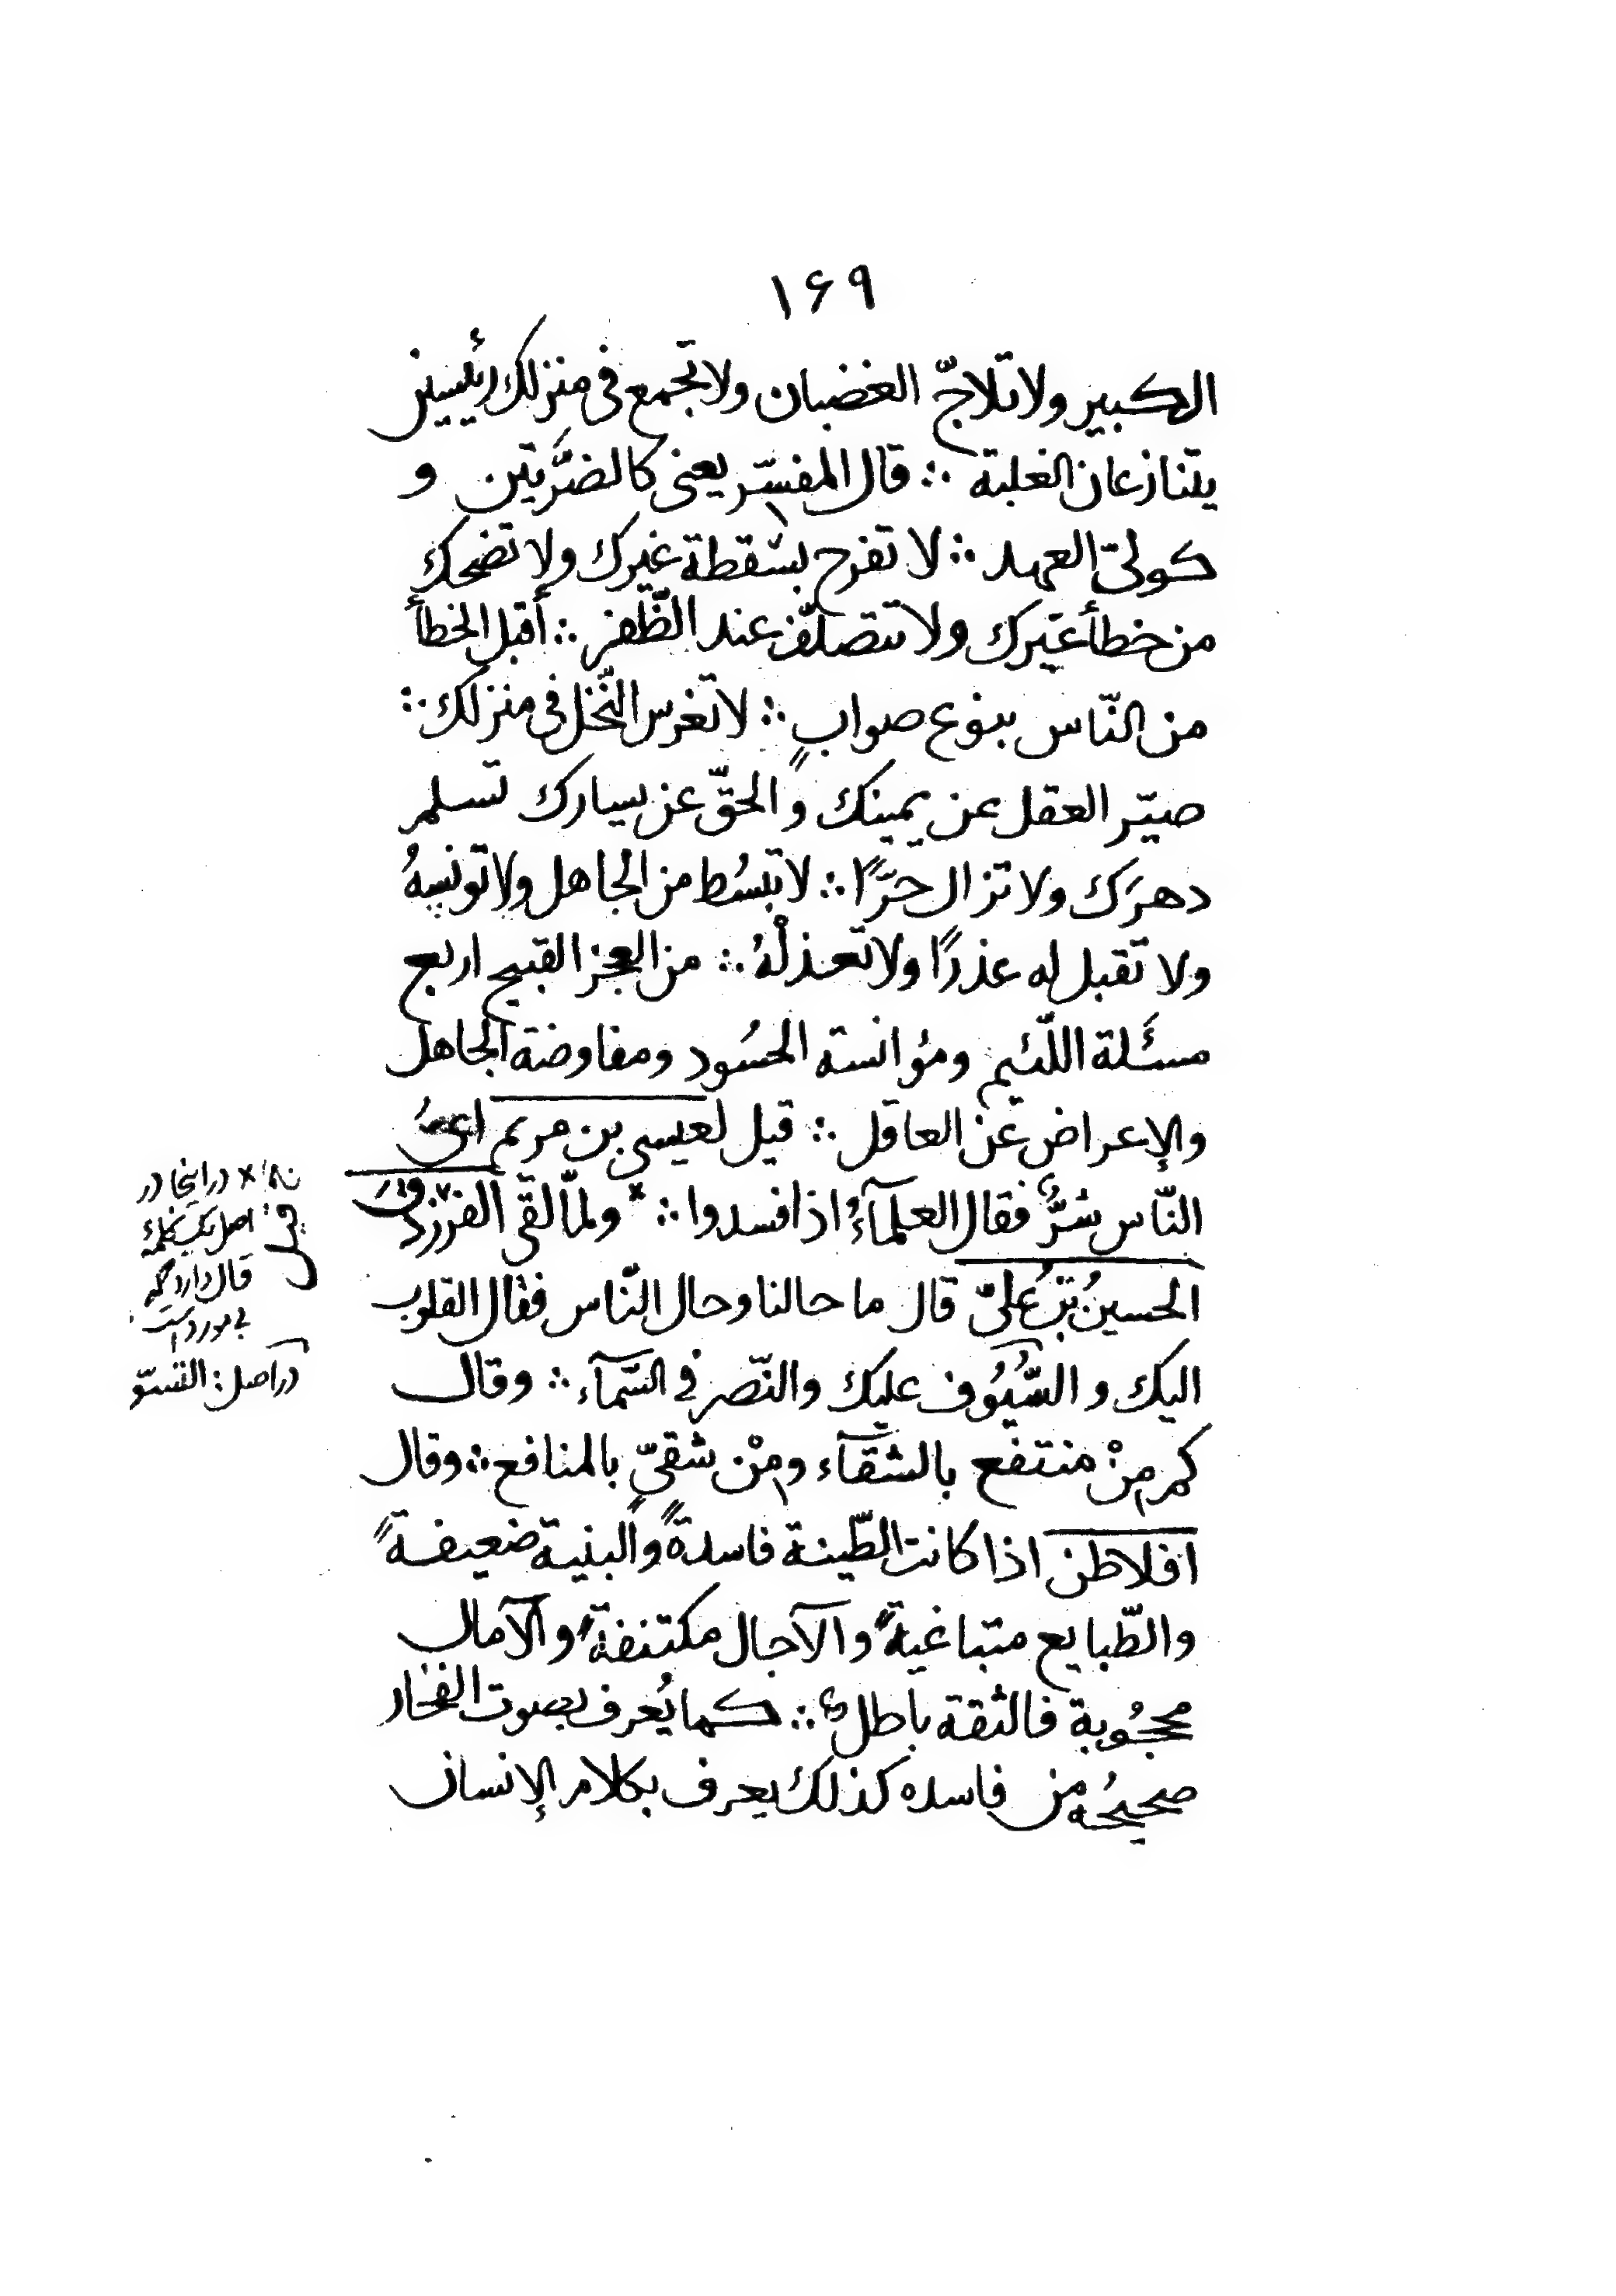 ۱۶۹
الكبير ولا تلاجّ الغضبان ولا تجمع فى منزلك رئيسين
يتنازعان الغلبة ∴ قال المفسّر يعنى كالضرّتين و
كولىّ العهد ∴ لا تفرح بسقطة غيرك ولا تضحك
من خطأ غيرك ولا تتصلّف عند الظّفر ∴ أقبل الخطأ
من النّاس بنوع صوابٍ ∴ لا تغرس النّخل فى منزلك ∴
صيّر العقل عن يمينك والحقّ عن يسارك تسلم
دهرَك ولا تزال حرًّا ∴ لا تبسُط من الجاهل ولا تونسهُ
ولا تقبل له عذرًا ولا تعذلْهُ ∴ من العجز القبيح اربع
مسئَلة اللّئيم ومؤانسته الحسُود ومفاوضة الجاهل
والإعراض عن العاقل ∴ قيل لعيسى بن مريم اىُّ
النّاس شرٌّ فقال العلمآءُ اذا فسدوا ∴ × ولمّا لقى الفرزدق
الحسينُ بنُ علىّ قال ما حالنا وحال النّاس فقال القلوب
اليك و السُّيُوف عليك والنّصر فى السّمآء ∴ وقال
كم منْ منتفع بالشقآء ومنْ شقىٍّ بالمنافع ∴ وقال
افلاطن اذا كانت الطّينة فاسدةً والبنية ضعيفةً
والطّبايع متباغيةً والآجال مكتنفةً والآمال
محجُوبة فالثقة باطلٌ ∴ كما يُعرف بصوت الفخار
صحيحُه من فاسده كذلك يعرف بكلام الإنسان
× در اینجا در
اصل یک کلمهٔ
قال دارد که
بی مورد است
در اصل: الفستو